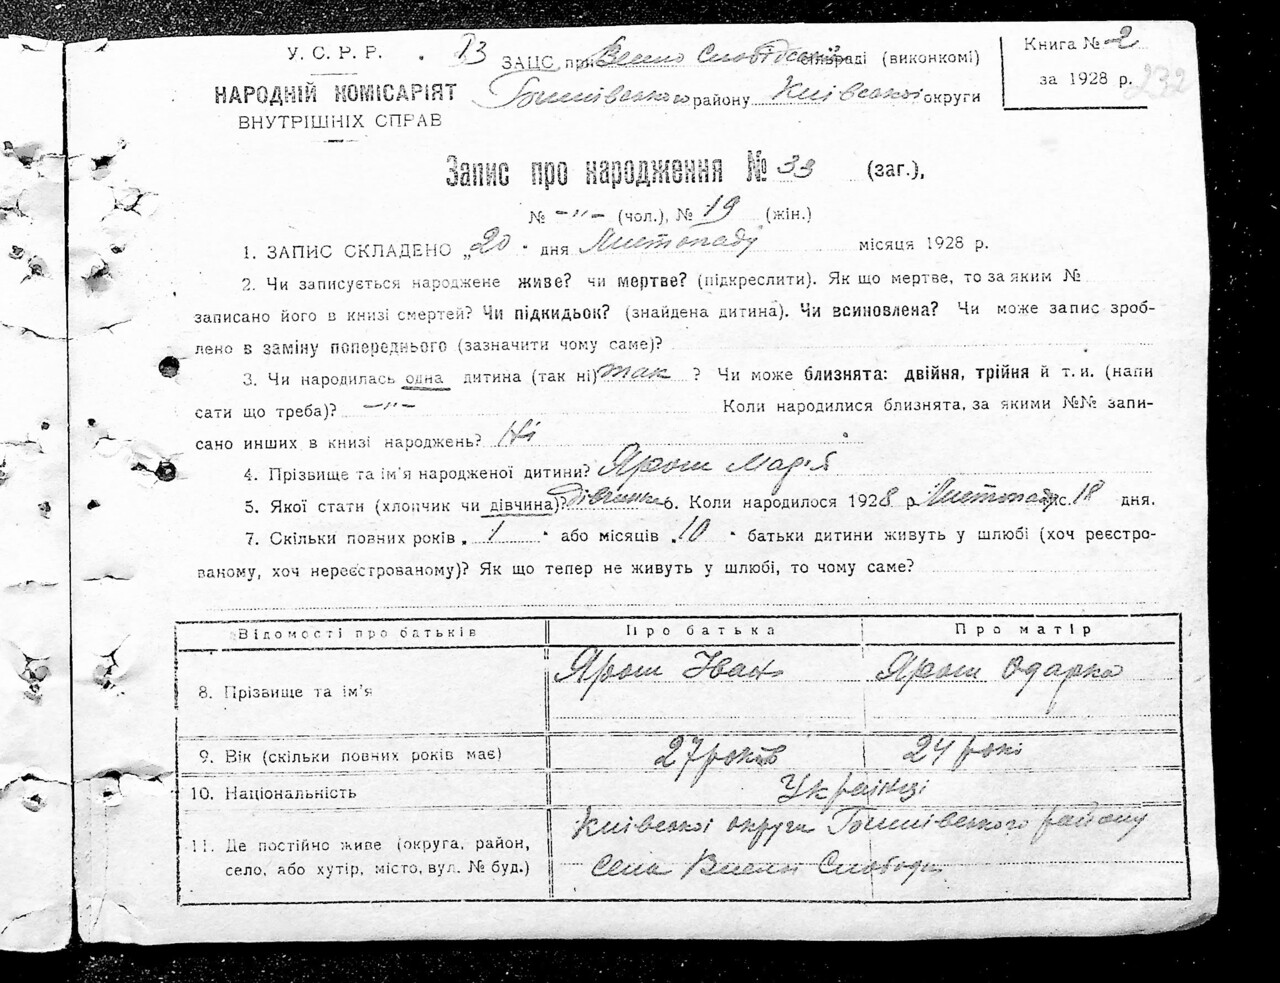 У. С. Р. Р.
НАРОДНІЙ КОМІСАРІЯТ
ВНУТРІШНІХ СПРАВ
ЗАЦС при Слобідській раді (виконкомі)
району Київської округи
Книга № 2
за 1928 р.
232
Запис про народження № 33 (заг.),
№ -"- (чол.), № 19 (жін.)
1. ЗАПИС СКЛАДЕНО „20" дня Листопаду місяця 1928 р.
2. Чи записується народжене живе? чи мертве? (підкреслити). Як що мертве, то за яким №
записано його в книзі смертей? Чи підкидьок? (знайдена дитина). Чи всиновлена? Чи може запис зроб-
лено в заміну попереднього (зазначити чому саме)?
3. Чи народилась одна дитина (так ні) так ? Чи може близнята: двійня, трійня й т. и. (напи
сати що треба)? -"- Коли народилися близнята, за якими №№ запи-
сано инших в книзі народжень? Ні
4. Прізвище та ім'я народженої дитини? Ярош Марія
5. Якої стати (хлопчик чи дівчина)? дівчинка 6. Коли народилося 1928 р. Листопаду с. 18 дня.
7. Скільки повних років „ 1 " або місяців „ 10 " батьки дитини живуть у шлюбі (хоч реєстро-
ваному, хоч нереєстрованому)? Як що тепер не живуть у шлюбі, то чому саме?
Відомості про батьків Про батька Про матір
8. Прізвище та ім'я Ярош Іван Ярош Одарка
9. Вік (скільки повних років має) 27 років 24 роки
10. Національність Українці
11. Де постійно живе (округа, район, Київської округи району
село, або хутір, місто, вул. № буд.) села Слободи